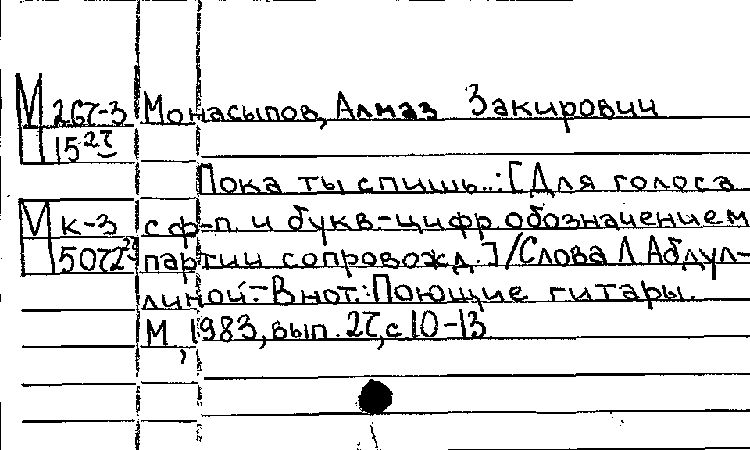 М 267-3 Монасыпов, Алмаз Закирович
15
Пока ты спишь..: [Для голоса
М к-3 с ф-п. и букв.-цифр. обозначением
5072 партии сопровожд.]/Слова Л Абдул-
линой.- В нот.: Поющие гитары.
М, 1983, вып. 27, с 10-13